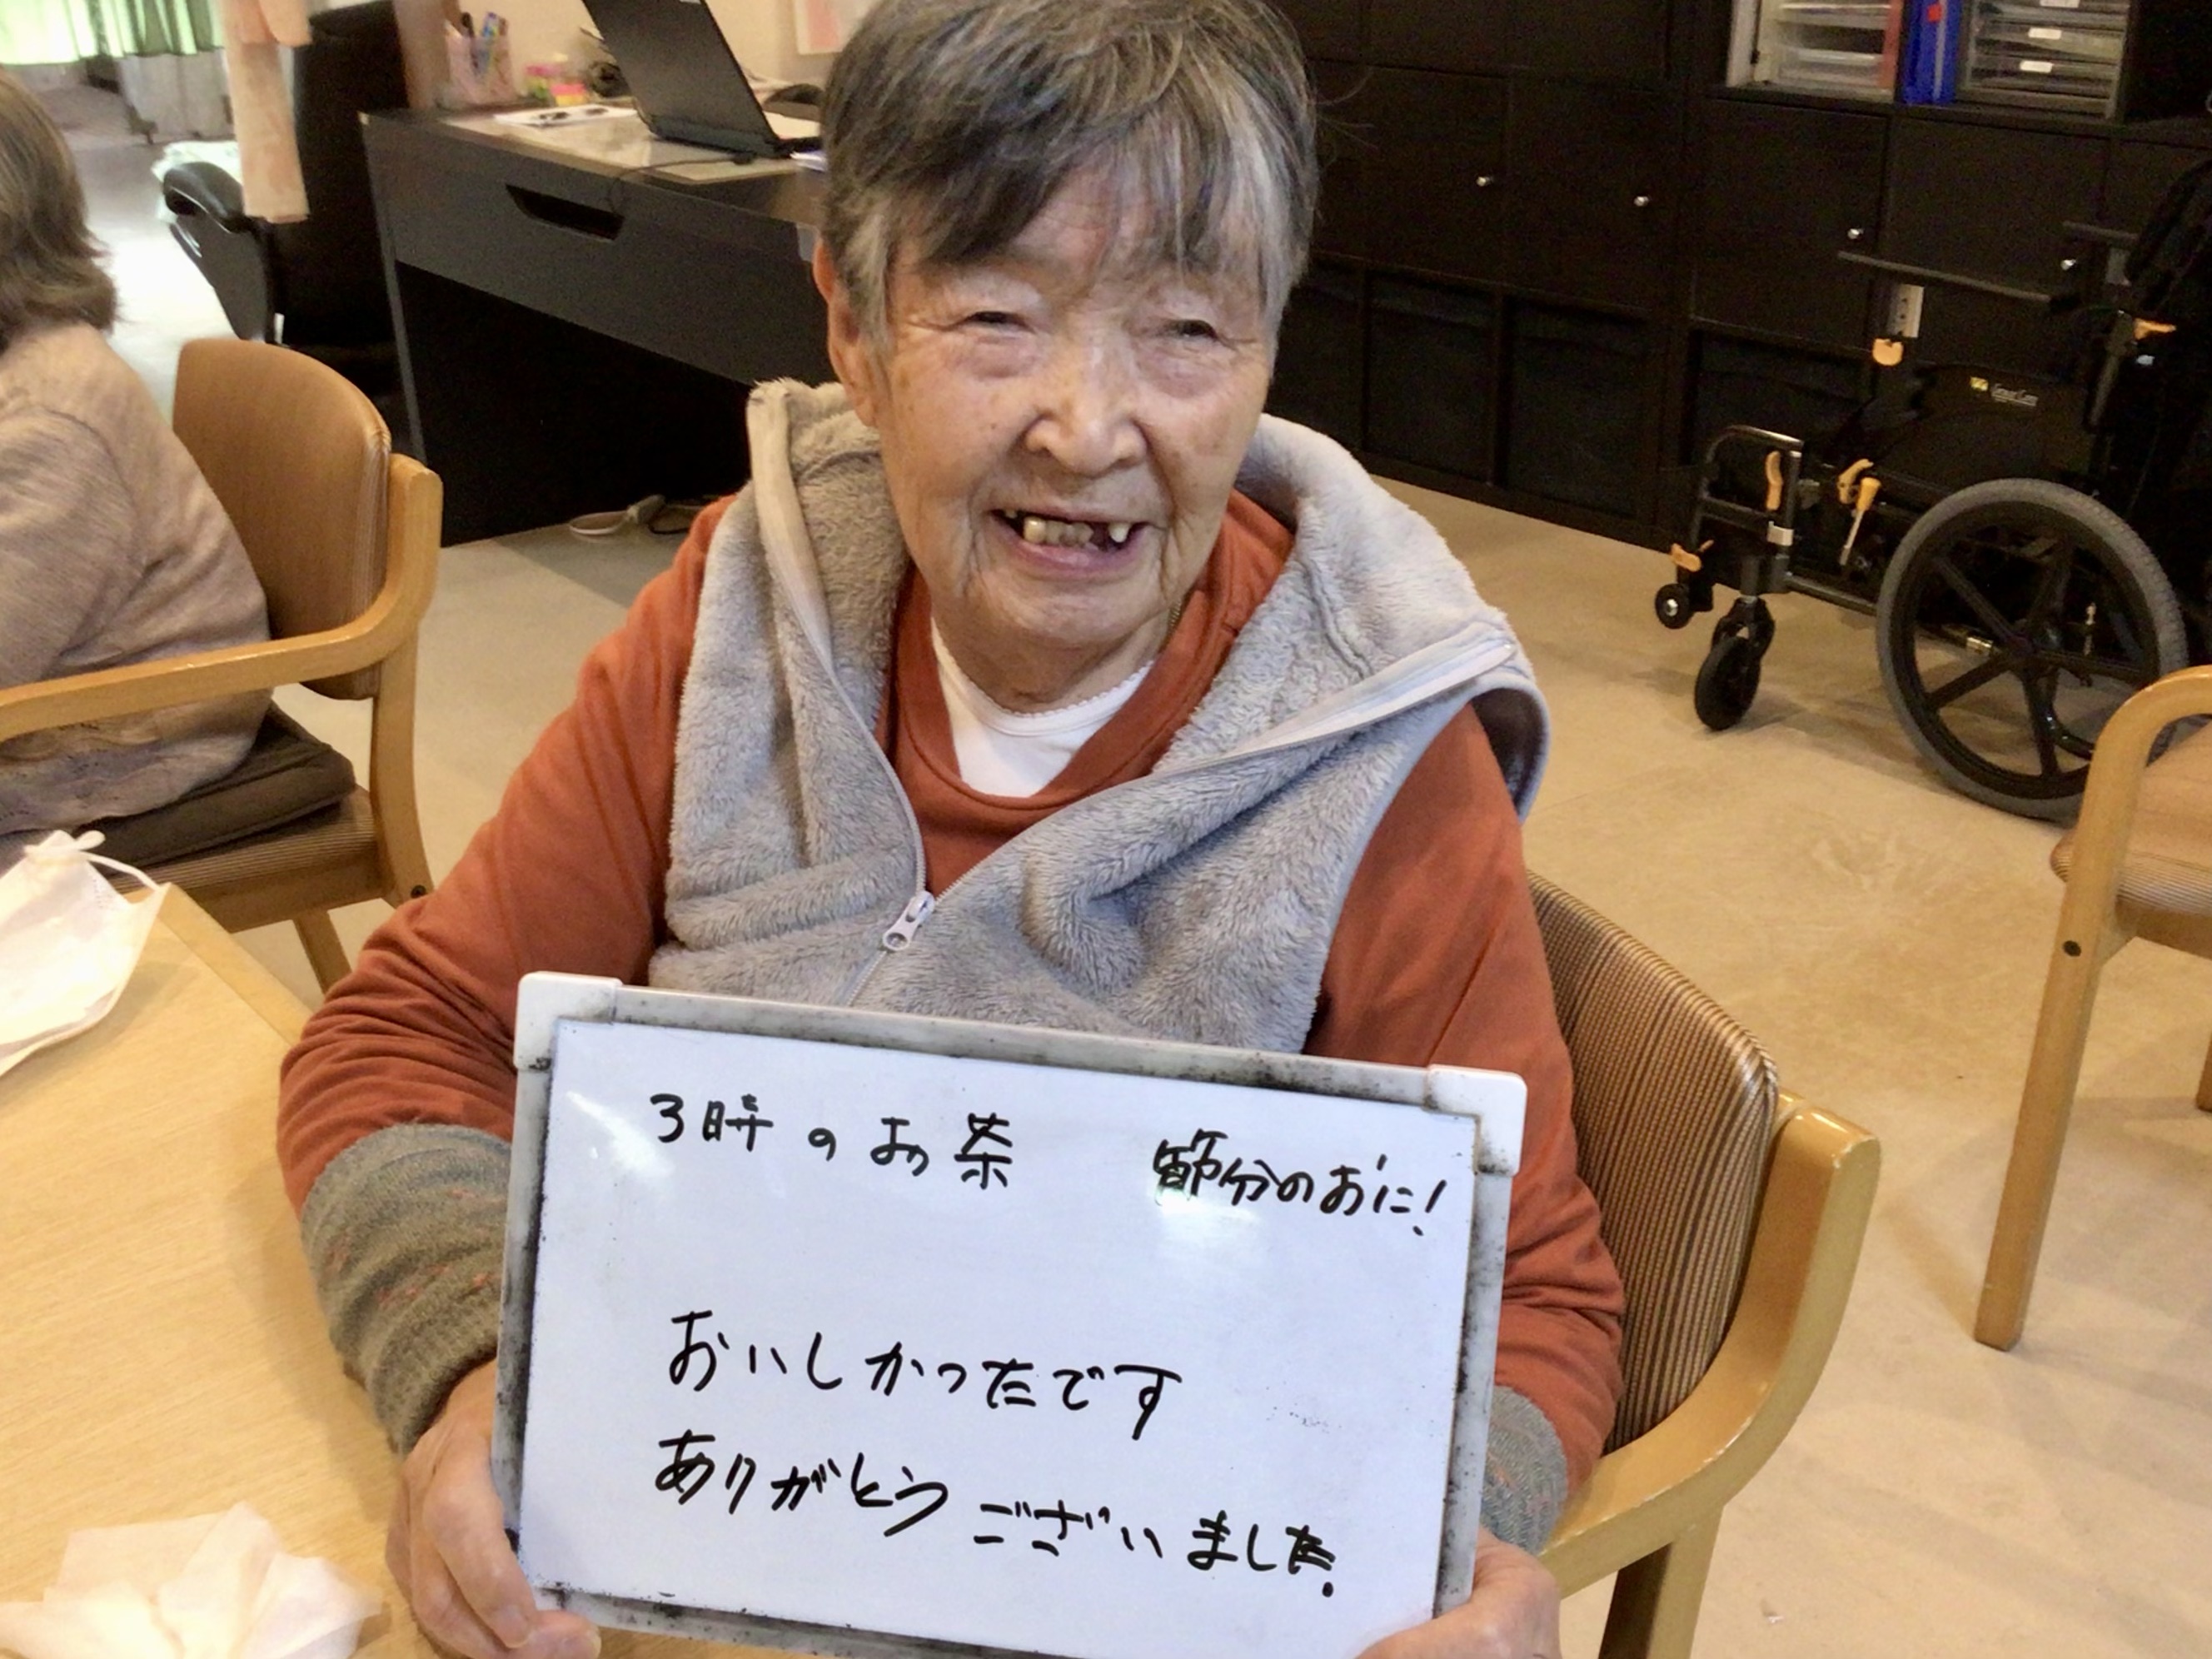 3時のお茶 節分のおに!
おいしかったです
ありがとうございました.